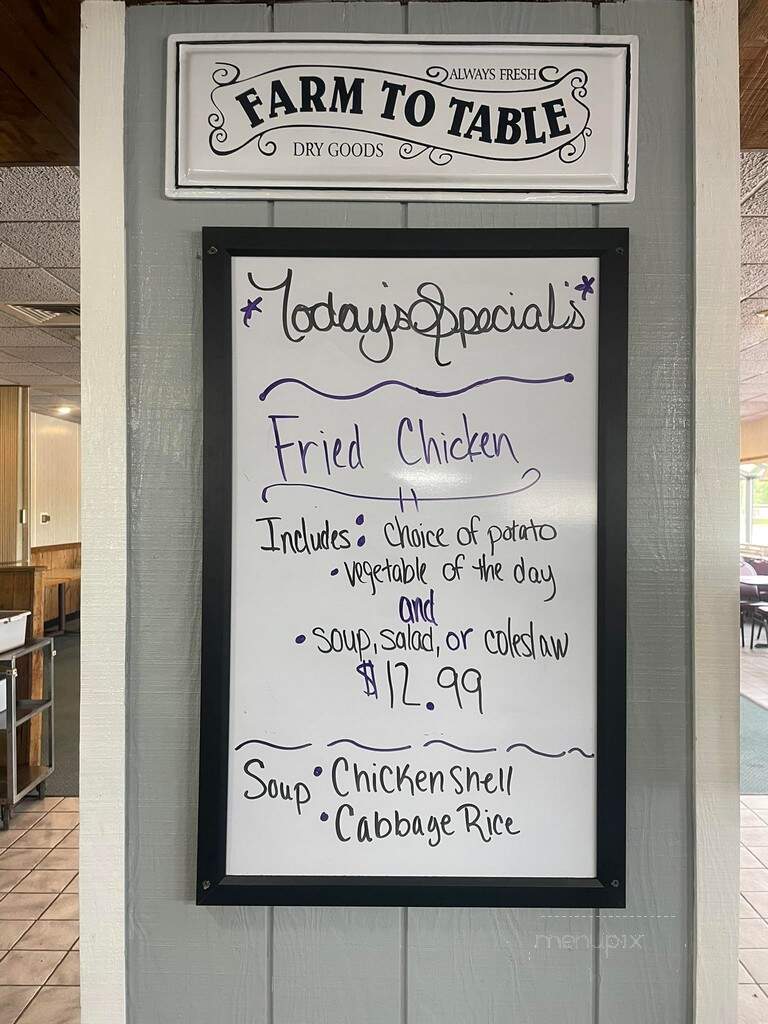 ALWAYS FRESH
FARM TO TABLE
DRY GOODS
Today's Special's
Fried Chicken
Includes: choice of potato
• vegetable of the day
and
• soup, salad, or coleslaw
$12.99
Soup • Chicken Shell
• Cabbage Rice
menupix